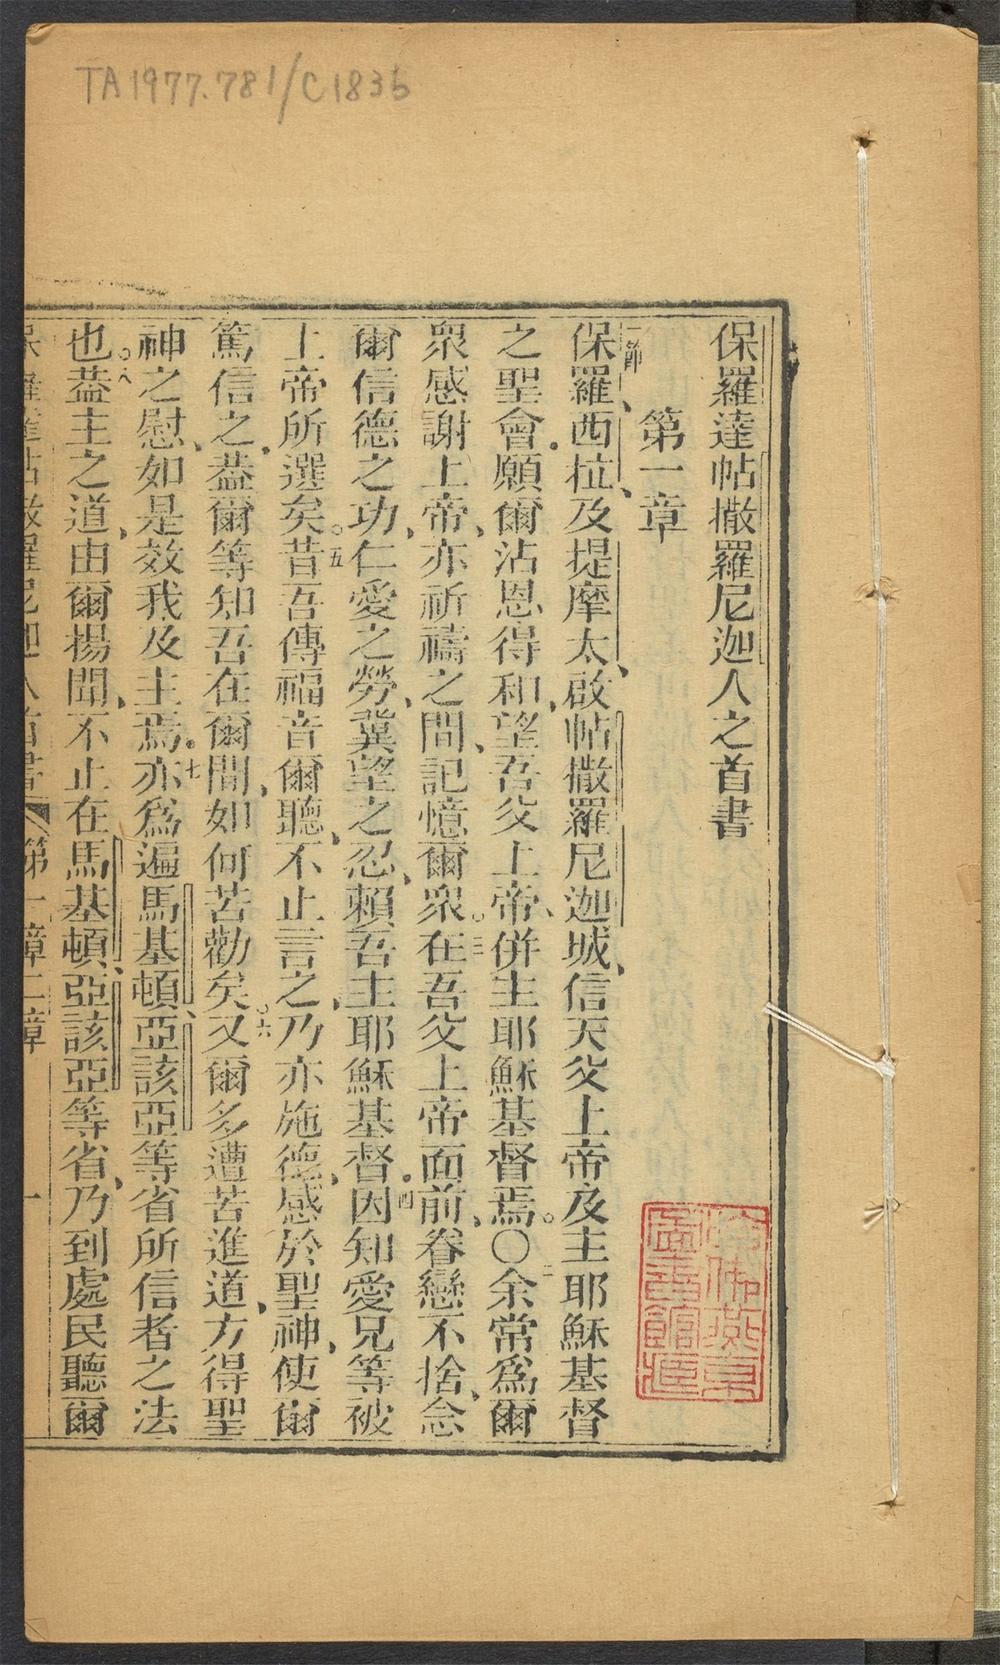 TA 1977.781/C1835
保羅達帖撒羅尼迦人之首書
第一章
一節保羅、西拉、及提摩太、啟帖撒羅尼迦城、信天父上帝及主耶穌基督
之聖會。願爾沾恩得和、望吾父上帝、併主耶穌基督焉。○二余常爲爾
衆感謝上帝、亦祈禱之間、記憶爾衆。三在吾父上帝面前、眷戀不捨、念
爾信德之功、仁愛之勞、冀望之忍、賴吾主耶穌基督。四因知愛兄等被
上帝所選矣。五昔吾傳福音、爾聽、不止言之、乃亦施德、感於聖神、使爾
篤信之。葢爾等知吾在爾間、如何苦勸矣。六又爾多遭苦進道、方得聖
神之慰、如是效我及主焉。七亦爲遍馬基頓、亞該亞等省所信者之法
也。八葢主之道、由爾揚聞、不止在馬基頓、亞該亞等省、乃到處民聽爾
保羅達帖撒羅尼迦人首書 第一章二章 一
燕京
圖書館